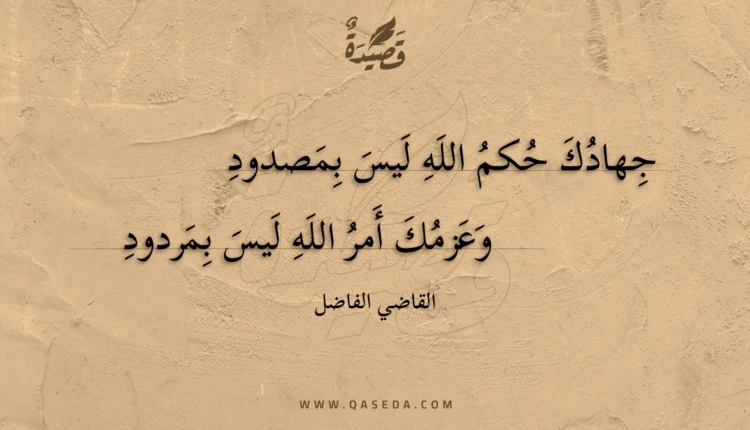 قَصِيدَةٌ
جِهادُكَ حُكمُ اللَهِ لَيسَ بِمَصدودِ
وَعَزمُكَ أَمرُ اللَهِ لَيسَ بِمَردودِ
القاضي الفاضل
WWW.QASEDA.COM